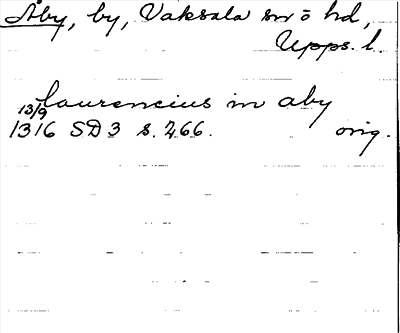 Åby, by, Vaksala sn o hd,
Upps. l.
laurencius in aby
13/9
1316 SD 3 s. 266. orig.